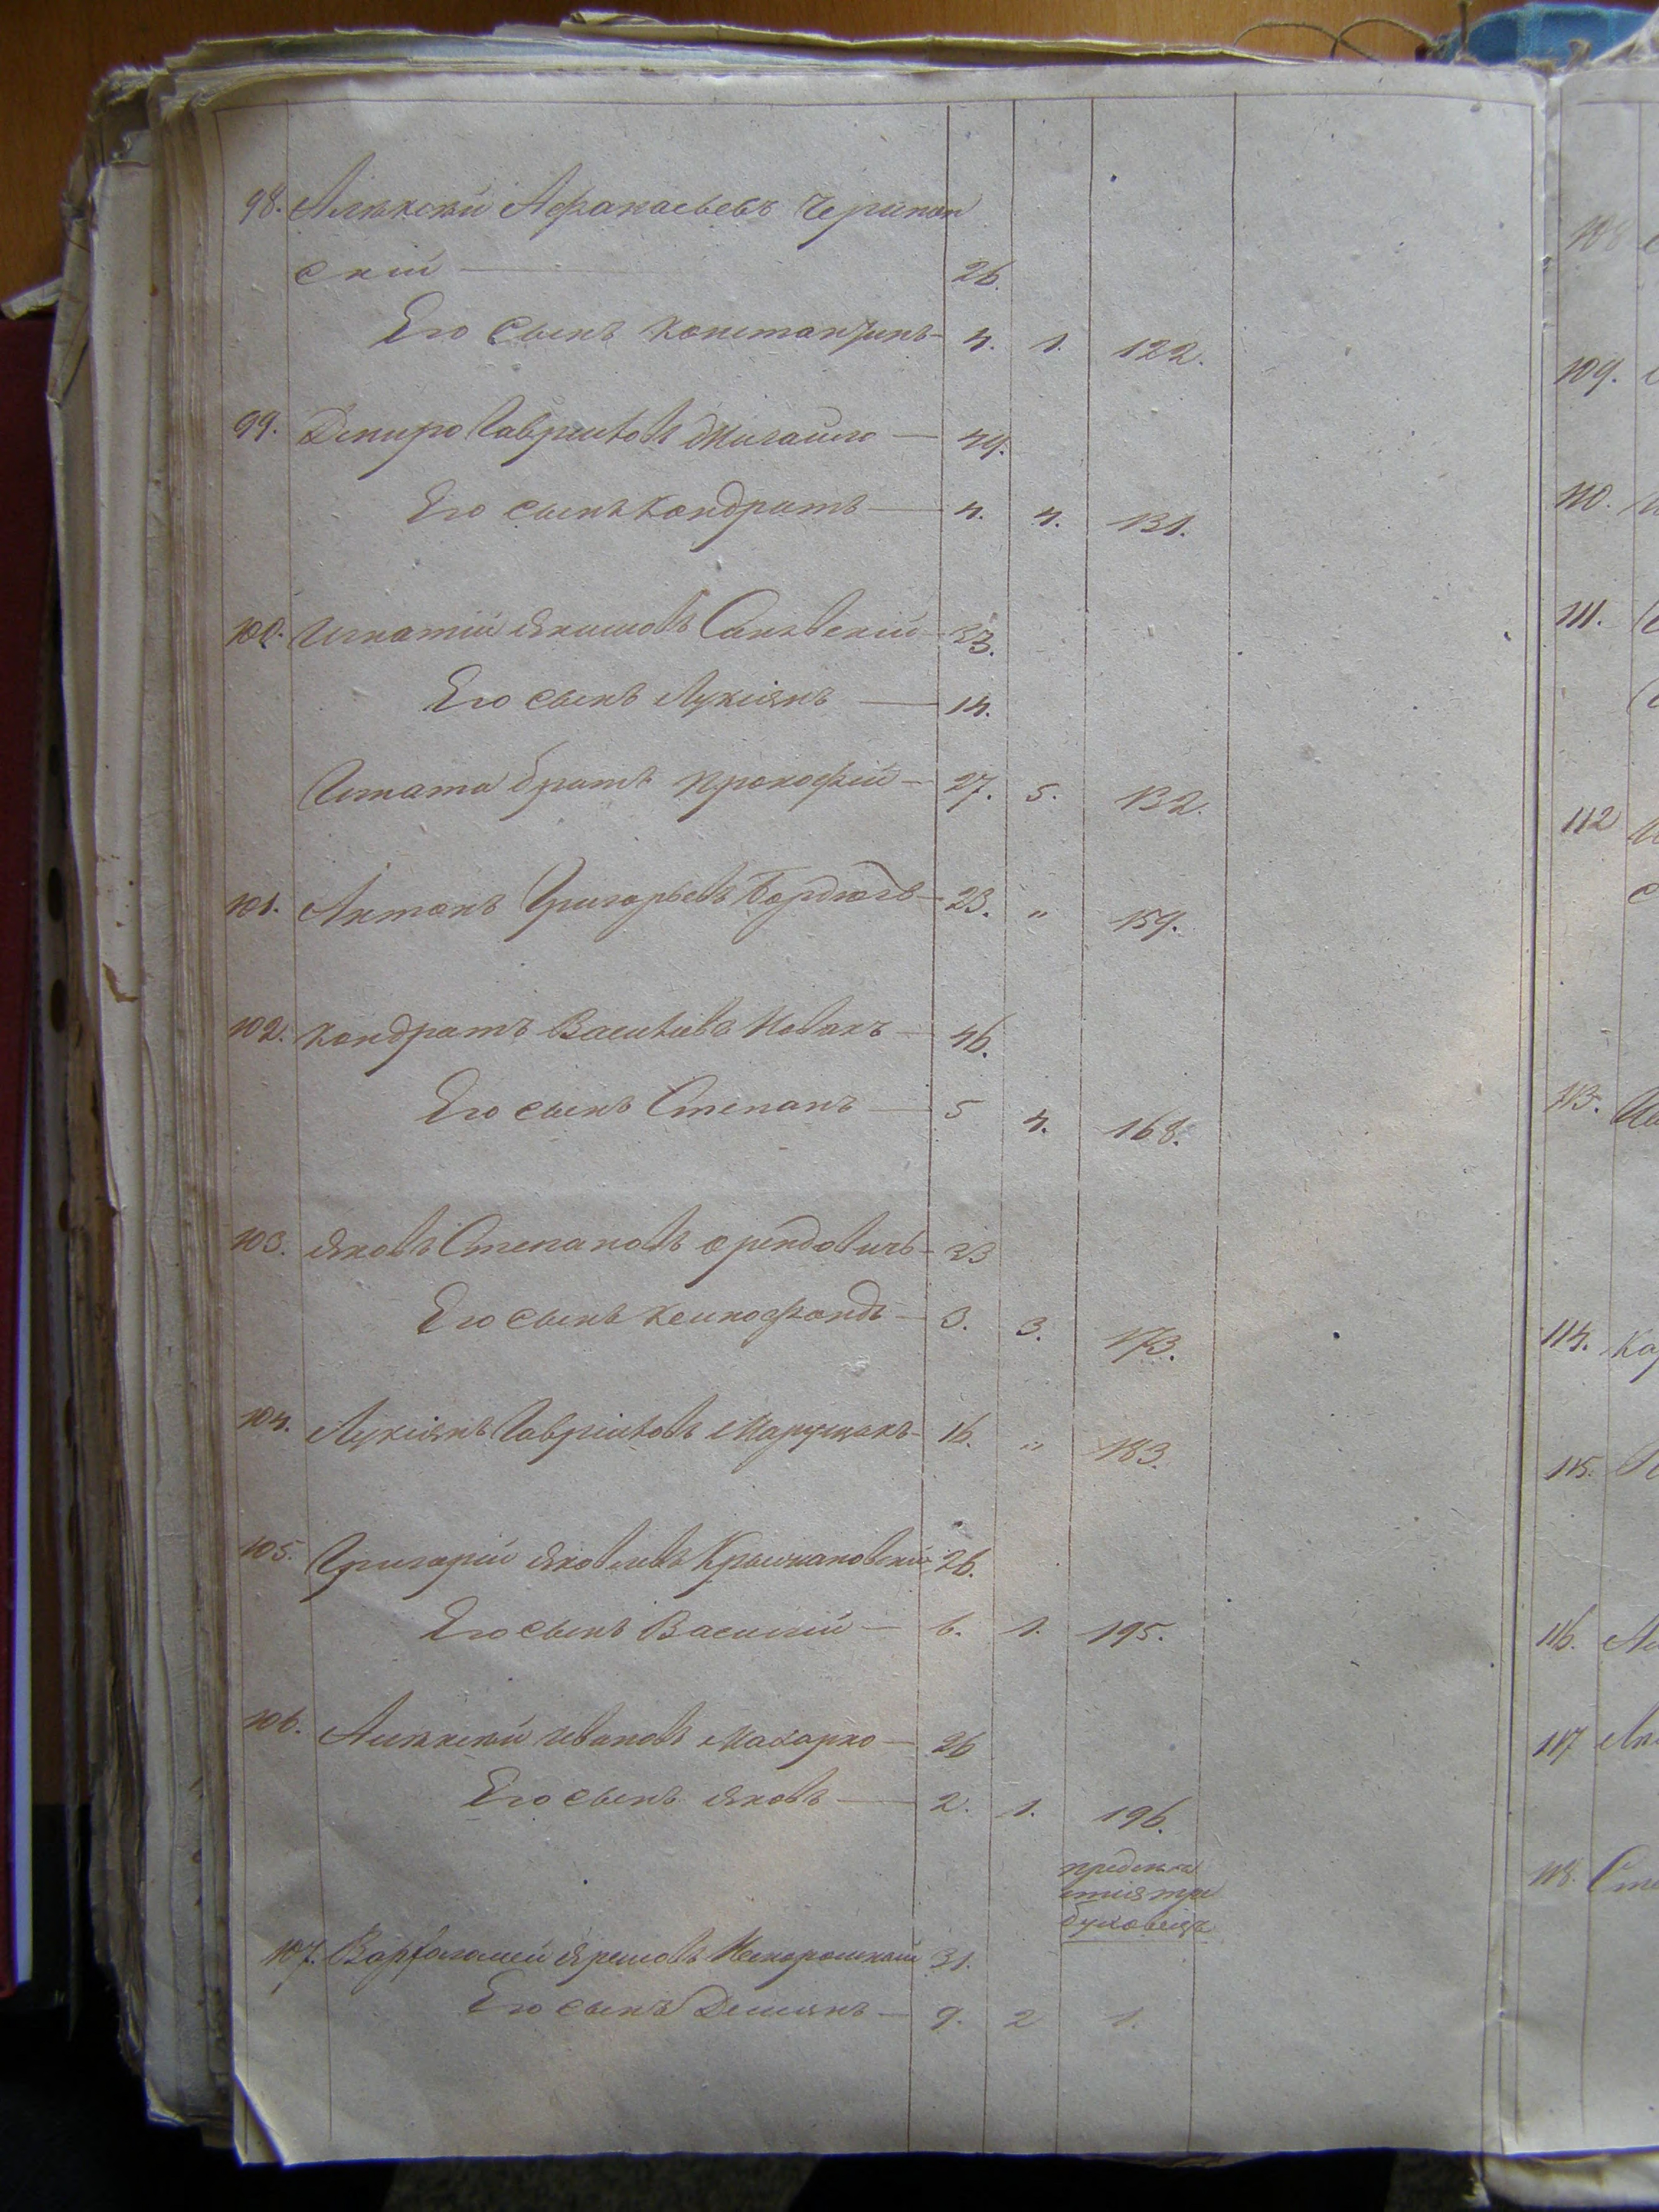 98. Алѣксѣй Афанасьевъ Черипан
скій — 26.
Его сынъ Константинъ — 4. 1. 122.
99. Дмитро Гавриловъ Михайло — 49.
Его сынъ Кондратъ — 4. 4. 131.
100. Игнатій Якимовъ Саковскій — 33.
Его сынъ Лукіянъ — 14.
Игната братъ Прокофій — 27. 5. 132.
101. Антонъ Григорьевъ Бордюгъ — 23. „ 159.
102. Кондратъ Васильевъ Новакъ — 46.
Его сынъ Степанъ — 5 4. 168.
103. Яковъ Степановъ Орендовичъ — 33
Его сынъ Ксенофондъ — 3. 3. 173.
104. Лукіянъ Гавріиловъ Марущакъ — 16. „ 183.
105. Григорій Яковлевъ Крыжановскій 26.
Его сынъ Василій — 6. 1. 195.
106. Алѣксѣй Ивановъ Макарко — 26
Его сынъ Яковъ — 2. 1. 196.
предмѣ
стія тре
буховецъ
107. Варфоломей Яремовъ Нехорошкій 31.
Его сынъ Демянъ — 9. 2 1.
109.
110.
111.
112
113.
114. Ка
115.
116.
117
118. Сте